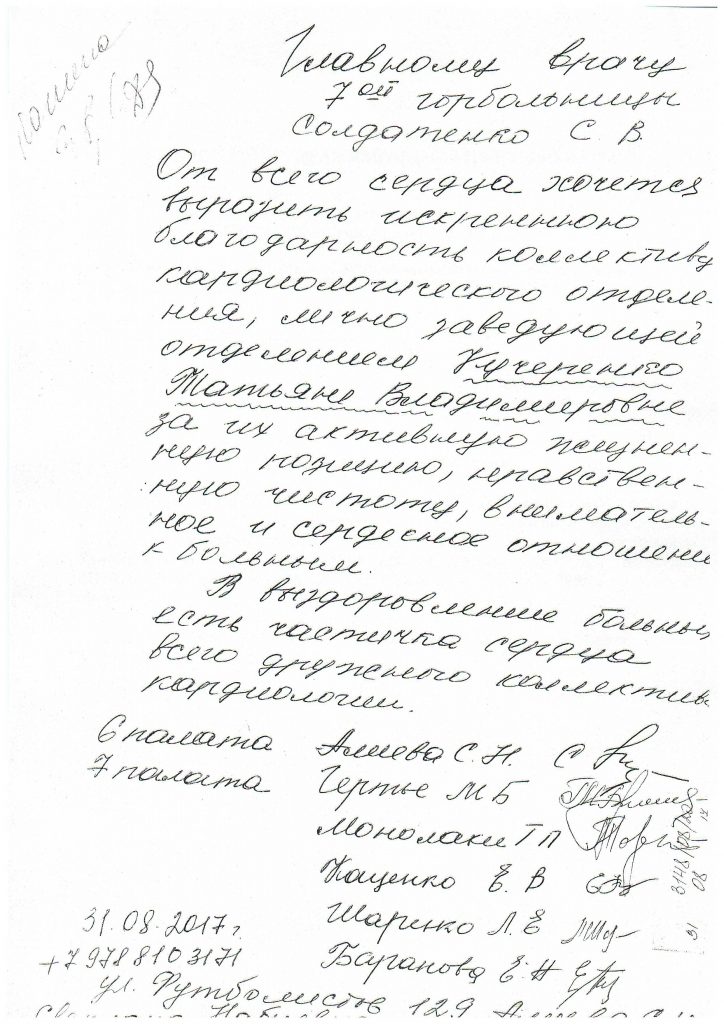 Главному врачу
7ой горбольницы
Солдатенко С. В.
От всего сердца хочется
выразить искреннюю
благодарность коллективу
кардиологического отделе-
ния, лично заведующей
отделением Кучеренко
Татьяне Владимировне
за их активную жизнен-
ную позицию, нравствен-
ную чистоту, вниматель-
ное и сердесное отношени
к больным.
В выздоровление больны
есть частичка сердца
всего дружного коллектив
кардиологии.
6 палата Алиева С. Н.
7 палата Гертье М Б
Монолаки Т П
Кащенко Е. В
31.08.2017г. Шаренко Л. Е
+7978 8103171 Баранова Е. Н
ул. Футболистов 129 Алиева